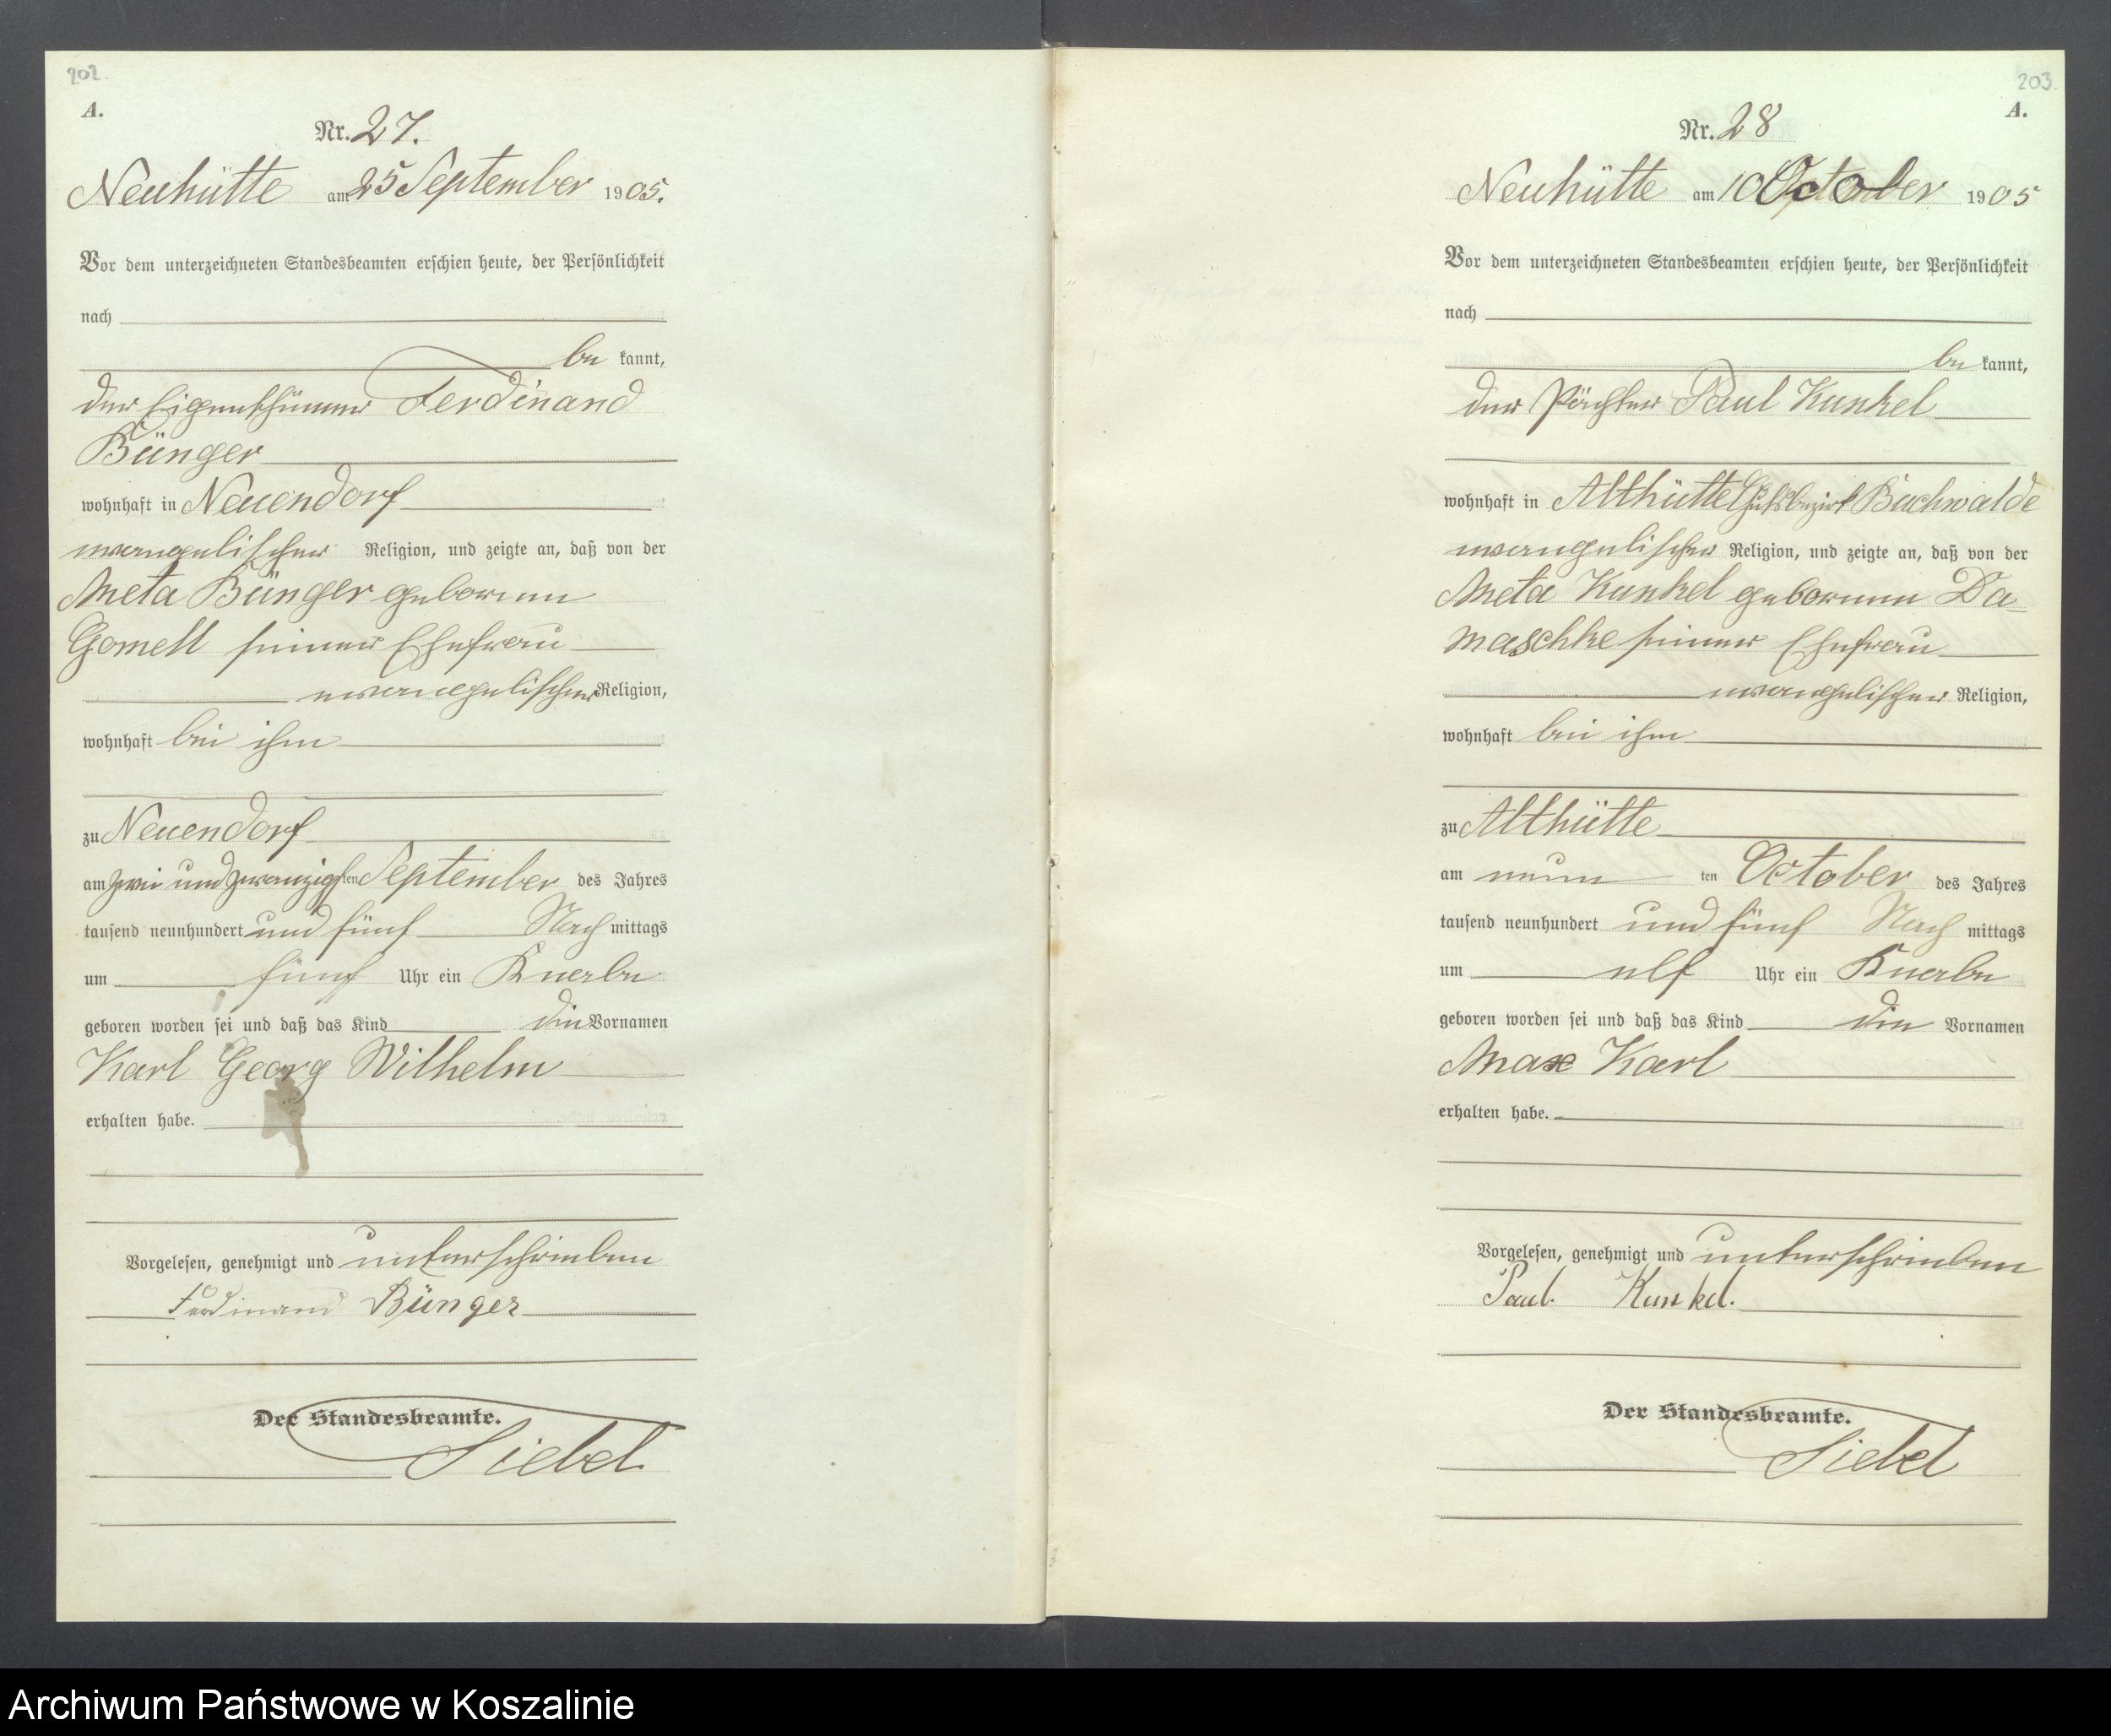 202.
A.
Nr. 27.
Neuhütte am 25 September 1905.
Vor dem unterzeichneten Standesbeamten erschien heute, der Persönlichkeit
nach
be kannt,
der Eigenthümer Ferdinand
Bünger
wohnhaft in Neuendorf
evangelischer Religion, und zeigte an, daß von der
Meta Bünger geborenen
Gomell seiner Ehefrau
evangelischer Religion,
wohnhaft bei ihm
zu Neuendorf
am zwei und zwanzigsten September des Jahres
tausend neunhundert und fünf Nach mittags
um fünf Uhr ein Knabe
geboren worden sei und daß das Kind die Vornamen
Karl Georg Wilhelm
erhalten habe.
Vorgelesen, genehmigt und unterschrieben
Ferdinand Bünger
Der Standesbeamte.
Siebel
203.
A.
Nr. 28
Neuhütte am 10 October 1905
Vor dem unterzeichneten Standesbeamten erschien heute, der Persönlichkeit
nach
be kannt,
der Pächter Paul Kunkel
wohnhaft in Althütte Gutsbezirk Buchwalde
evangelischer Religion, und zeigte an, daß von der
Meta Kunkel geborenen Da
maschke seiner Ehefrau
evangelischer Religion,
wohnhaft bei ihm
zu Althütte
am neun ten October des Jahres
tausend neunhundert und fünf Nach mittags
um elf Uhr ein Knabe
geboren worden sei und daß das Kind die Vornamen
Max Karl
erhalten habe.
Vorgelesen, genehmigt und unterschrieben
Paul Kunkel.
Der Standesbeamte.
Siebel
Archiwum Państwowe w Koszalinie